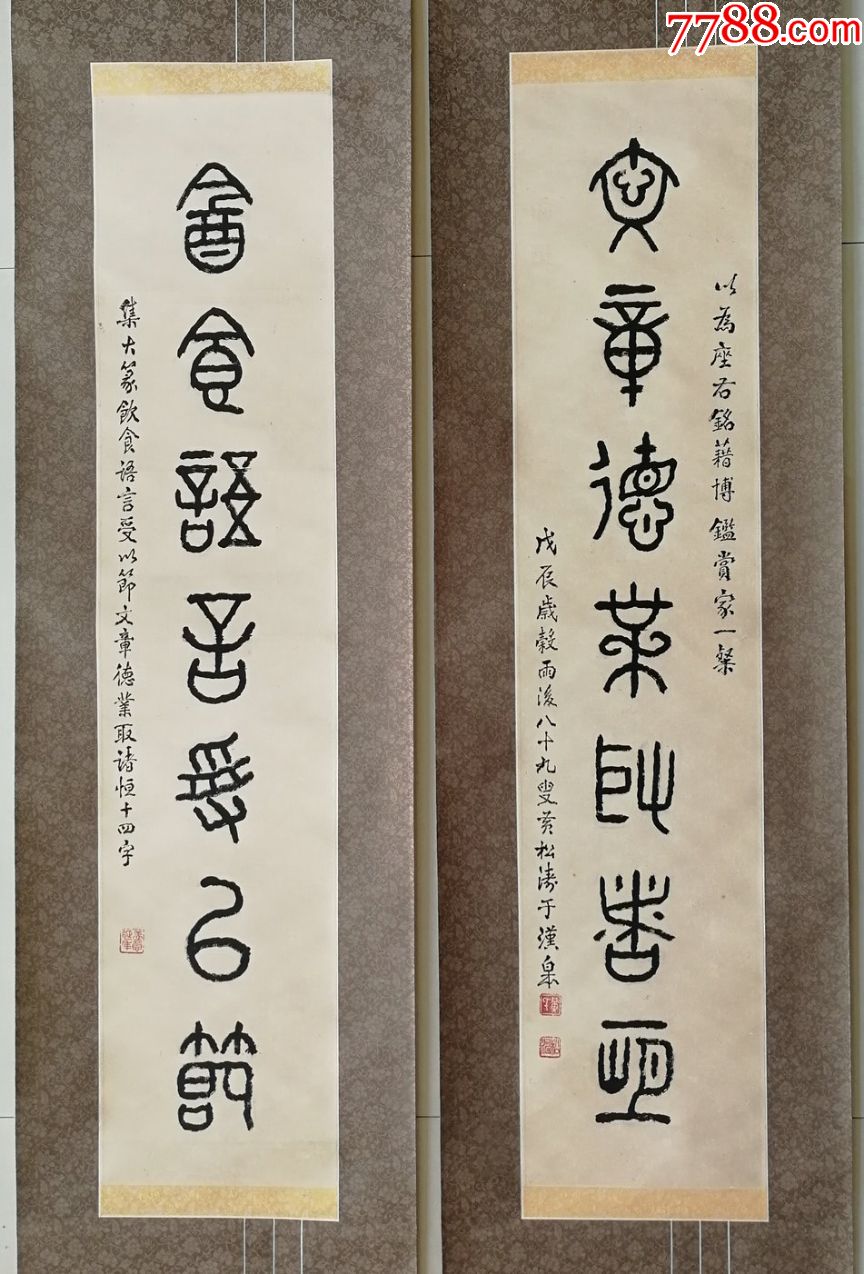 7788.com
以為座右銘藉博鑑賞家一粲
文章德業取諸恒
戊辰歲穀雨後八十九叟黃松濤于漢皋
飲食語言受以節
集大篆飲食語言受以節文章德業取諸恒十四字